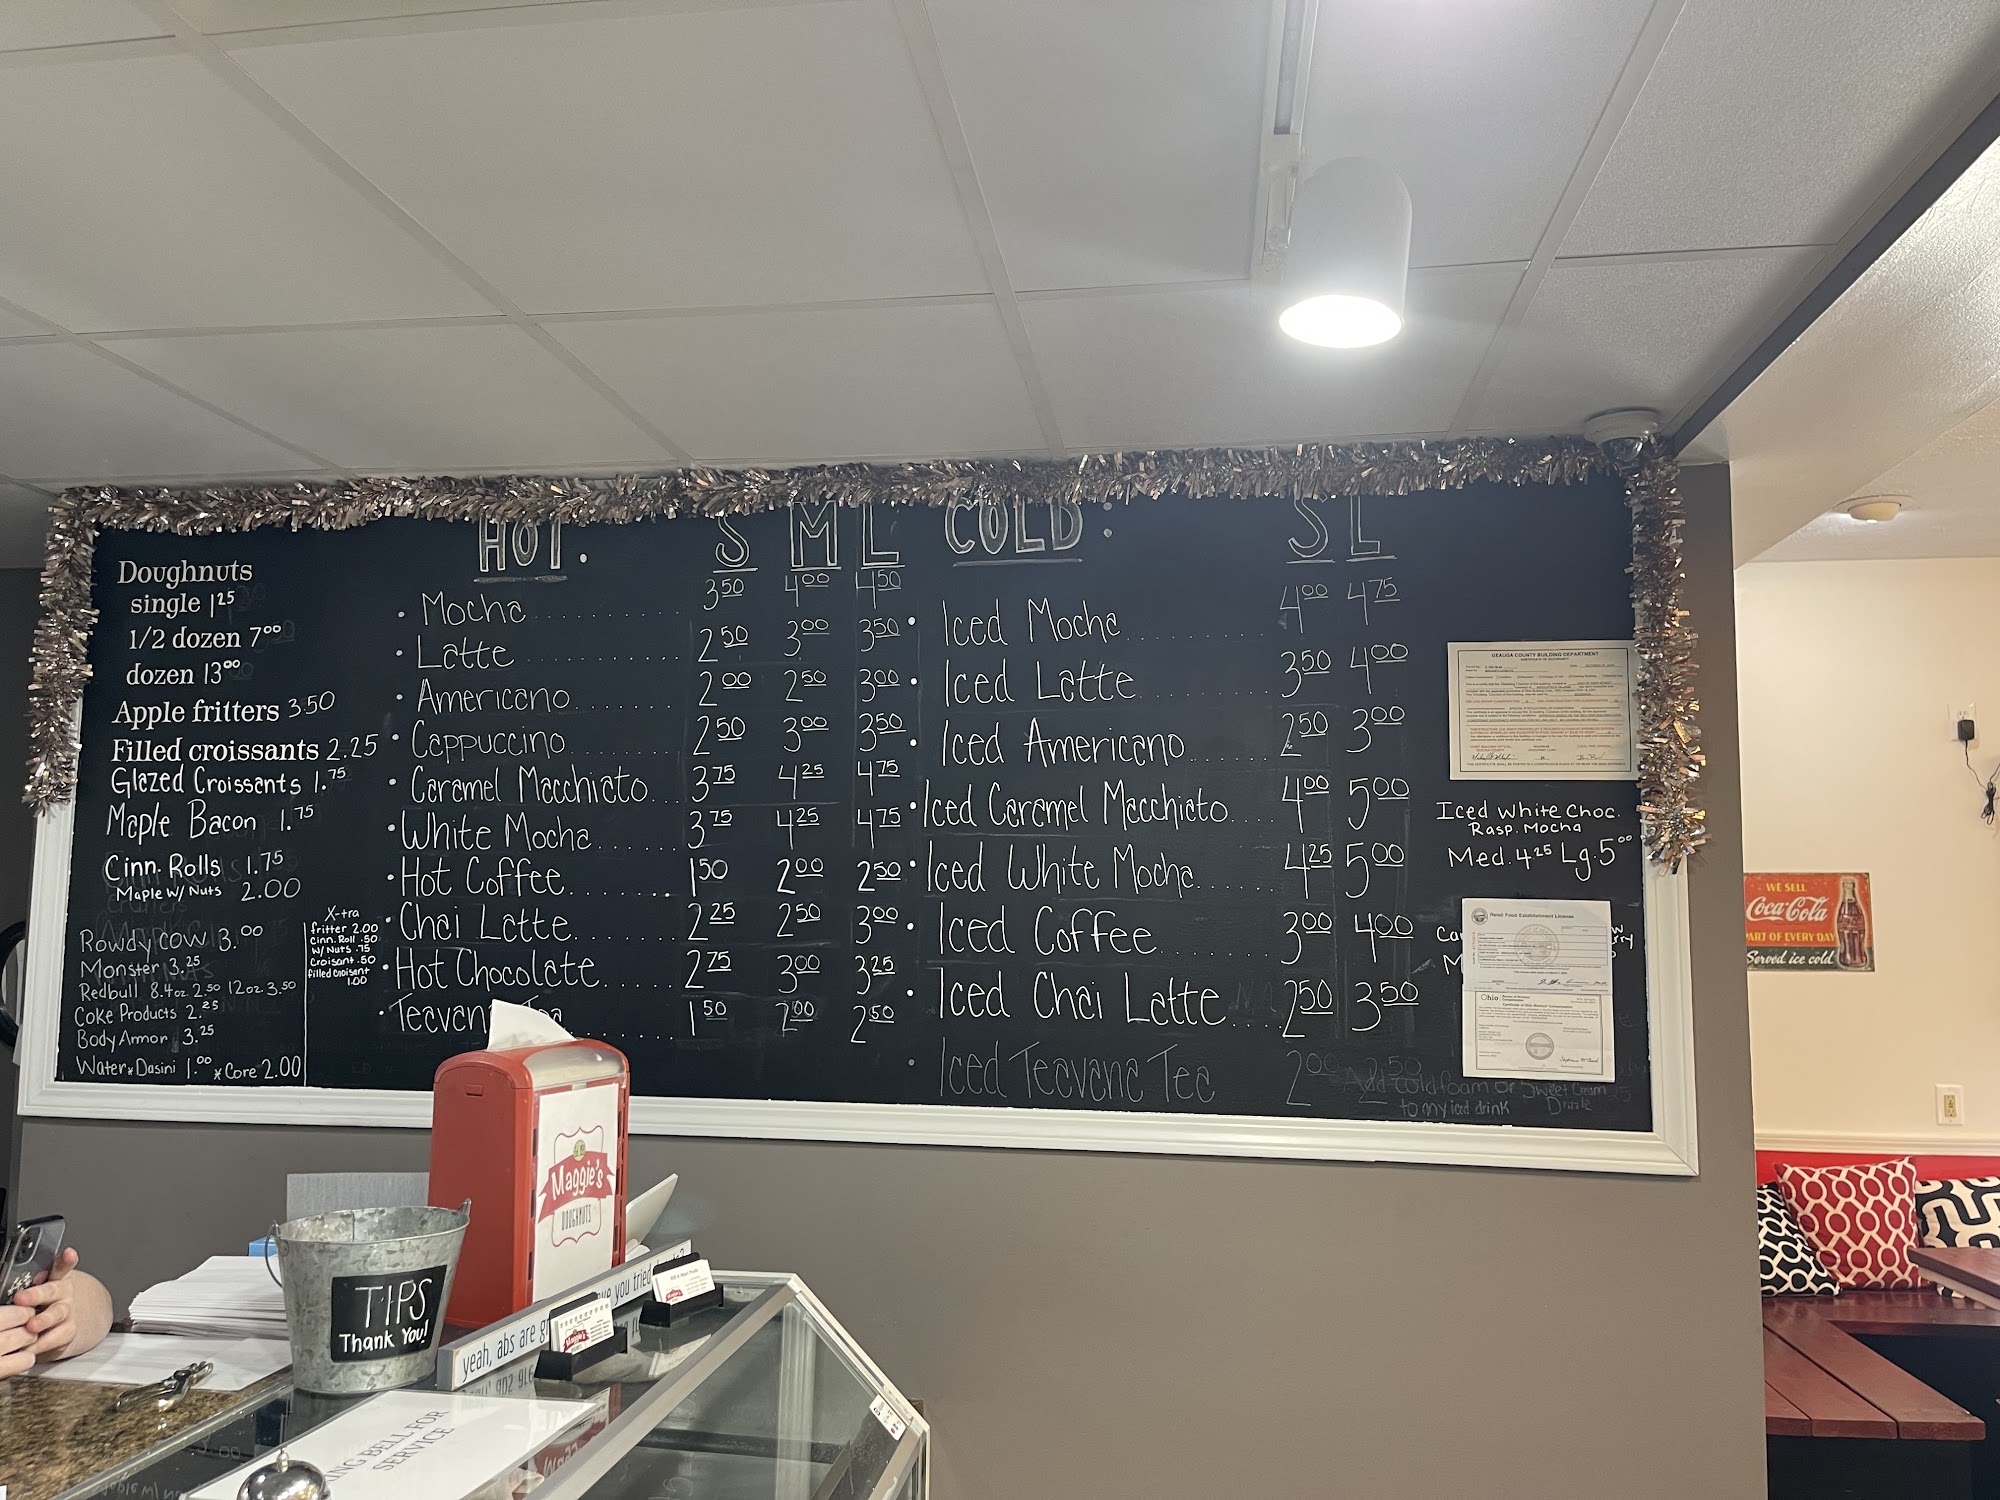 Doughnuts
single 1.25
1/2 dozen 7.00
dozen 13.00
Apple fritters 3.50
Filled croissants 2.25
Glazed Croissants 1.75
Maple Bacon 1.75
Cinn. Rolls 1.75
Maple w/ Nuts 2.00
Rowdy cow 3.00
Monster 3.25
Redbull 8.4oz 2.50 12oz 3.50
Coke Products 2.25
Body Armor 3.25
Water * Dasini 1.00 * Core 2.00
X-tra
fritter 2.00
Cinn. Roll .50
w/ Nuts .75
Croisant .50
filled croisant
1.00
HOT: S M L
• Mocha 3.50 4.00 4.50
• Latte 2.50 3.00 3.50
• Americano 2.00 2.50 3.00
• Cappuccino 2.50 3.00 3.50
• Caramel Macchiato 3.75 4.25 4.75
• White Mocha 3.75 4.25 4.75
• Hot Coffee 1.50 2.00 2.50
• Chai Latte 2.25 2.50 3.00
• Hot Chocolate 2.75 3.00 3.25
1.50 2.00 2.50
COLD: S L
• Iced Mocha 4.00 4.75
• Iced Latte 3.50 4.00
• Iced Americano 2.50 3.00
• Iced Caramel Macchiato 4.00 5.00
• Iced White Mocha 4.25 5.00
• Iced Coffee 3.00 4.00
• Iced Chai Latte 2.50 3.50
• Iced Teavana Tea 2.00 2.50
Add cold foam or Sweet Cream
to any iced drink Drizzle
GEAUGA COUNTY BUILDING DEPARTMENT
CERTIFICATE OF OCCUPANCY
Iced White Choc.
Rasp. Mocha
Med. 4.25 Lg. 5.00
Retail Food Establishment License
Ohio
WE SELL
Coca-Cola
PART OF EVERY DAY
Served ice cold
Maggie's
DOUGHNUTS
TIPS
Thank You!
yeah, abs are
you tried
RING BELL FOR
SERVICE